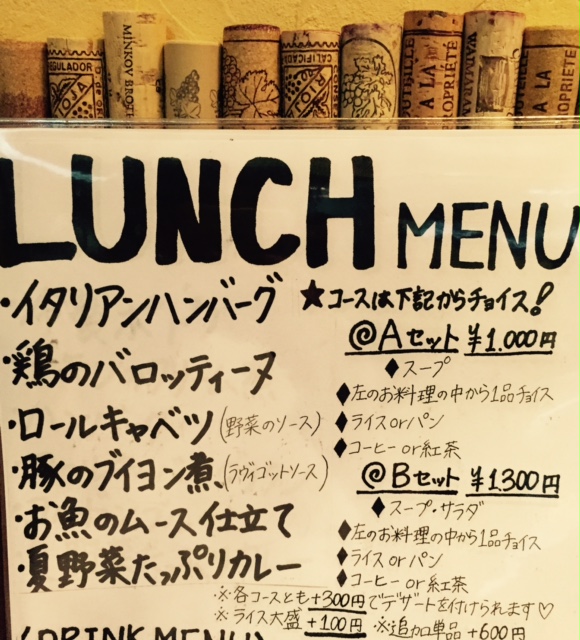 REGULADOR
RIOJA
MINKOV BROTHERS
CALIFICADA
RIOJA
BOUTEILLE
A LA
PROPRIÉTÉ
A LA
PROPRIETE
LUNCH MENU
・イタリアンハンバーグ
・鶏のバロッティーヌ
・ロールキャベツ(野菜のソース)
・豚のブイヨン煮、(ラヴィゴットソース)
・お魚のムース仕立て
・夏野菜たっぷりカレー
★コースは下記からチョイス!
@Aセット ¥1.000円
♦スープ
♦左のお料理の中から1品チョイス
♦ライスorパン
♦コーヒーor紅茶
@Bセット ¥1.300円
♦スープ・サラダ
♦左のお料理の中から1品チョイス
♦ライスorパン
♦コーヒーor紅茶
※各コースとも+300円でデザートを付けられます♡
※ライス大盛+100円 ※追加単品+600円
(DRINK MENU)